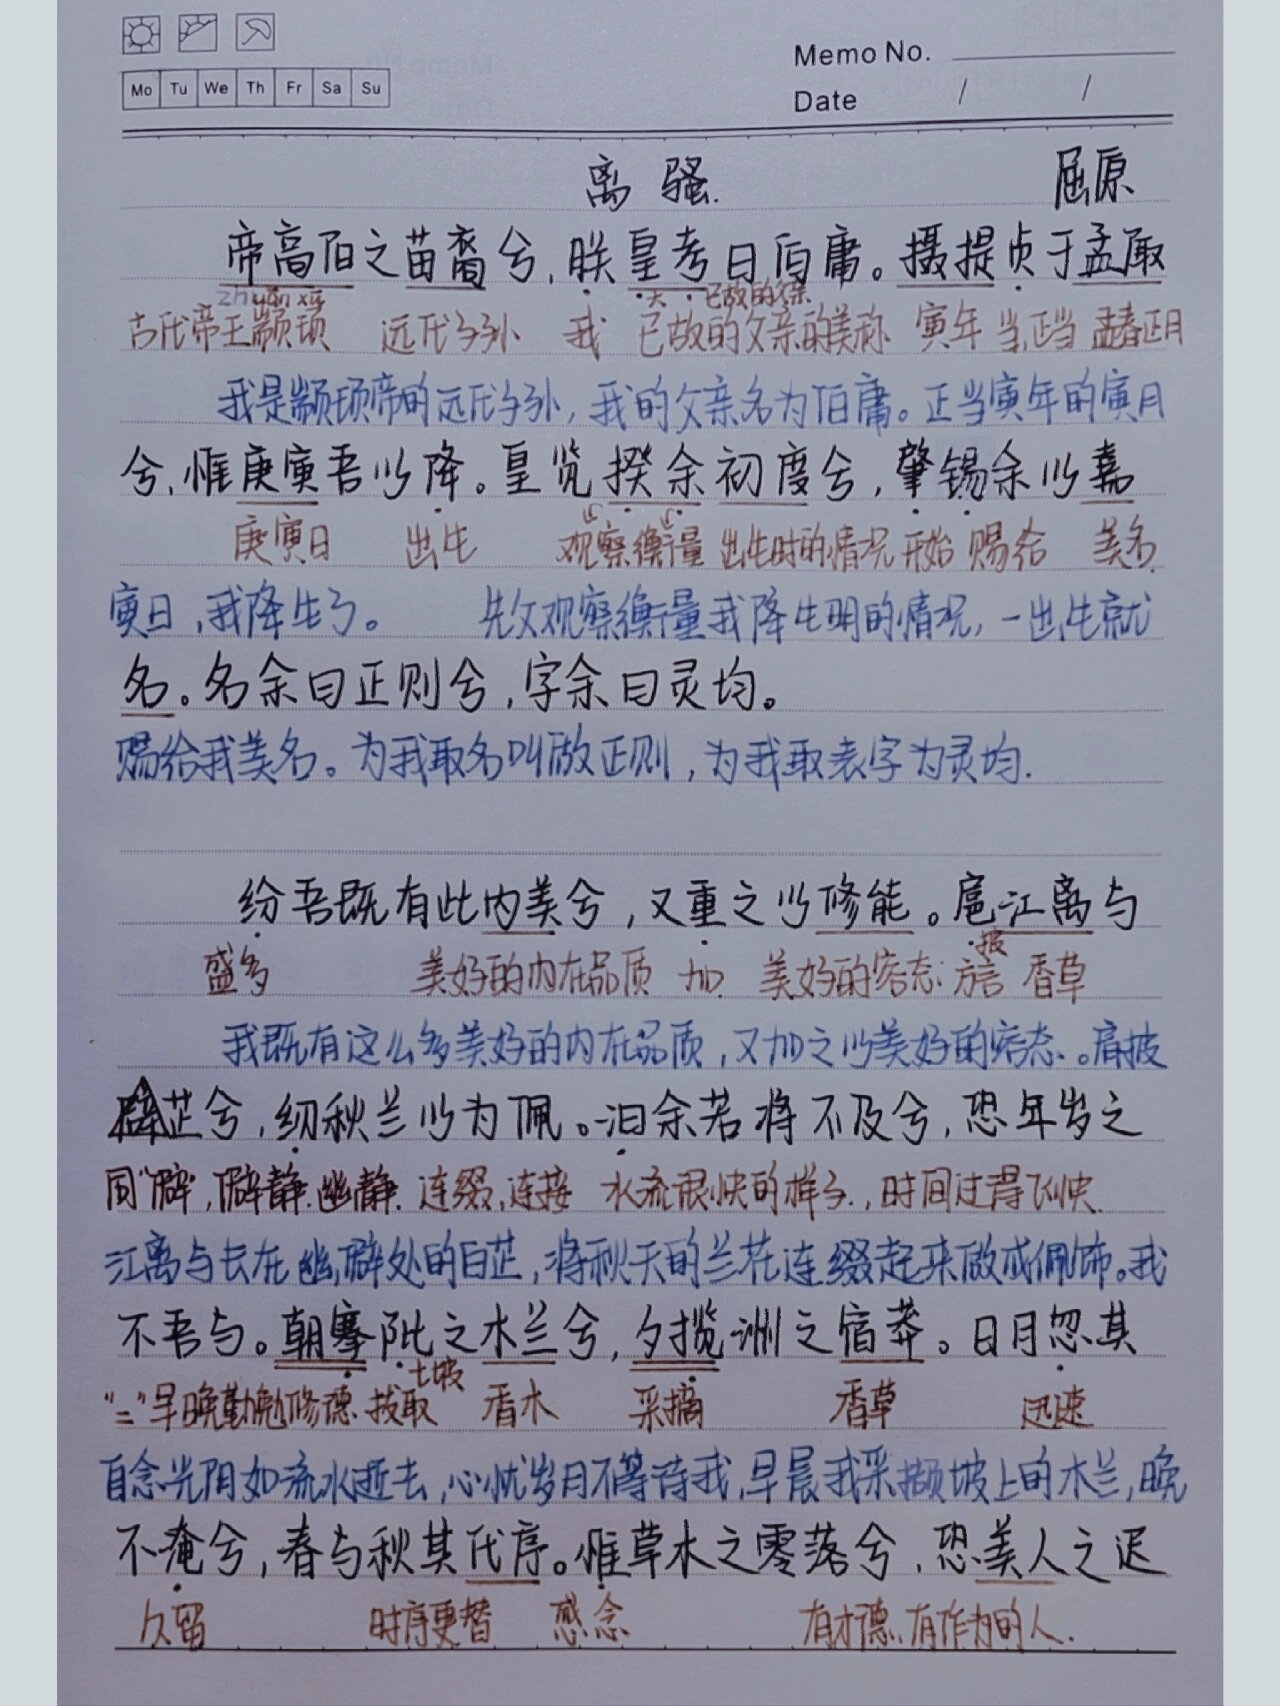 Memo No.
Mo Tu We Th Fr Sa Su
Date / /
离骚. 屈原
帝高阳之苗裔兮,朕皇考曰伯庸。摄提贞于孟陬
zhuān xū 大 已故的父亲
古代帝王颛顼 远代子孙 我 已故的父亲的美称 寅年 当,正当 孟春正月
我是颛顼帝的远代子孙,我的父亲名为伯庸。正当寅年的寅月
兮,惟庚寅吾以降。皇览揆余初度兮,肇锡余以嘉
庚寅日 出生 观察衡量 出生时的情况 开始 赐给 美名.
寅日,我降生了。 先父观察衡量我降生时的情况,一出生就
名。名余曰正则兮,字余曰灵均。
赐给我美名。为我取名叫做正则,为我取表字为灵均.
纷吾既有此内美兮,又重之以修能。扈江离与
披
盛多 美好的内在品质 加 美好的容态 方言 香草
我既有这么多美好的内在品质,又加之以美好的容态。肩披
辟芷兮,纫秋兰以为佩。汩余若将不及兮,恐年岁之
同“僻”,僻静.幽静. 连缀,连接 水流很快的样子.,时间过得飞快.
江离与长在幽僻处的白芷,将秋天的兰花连缀起来做成佩饰。我
不吾与。朝搴阰之木兰兮,夕揽洲之宿莽。日月忽其
土坡
“=”早晚勤勉修德. 拔取 香木 采摘 香草 迅速
自念光阴如流水逝去,心忧岁月不等待我,早晨我采撷坡上的木兰,晚
不淹兮,春与秋其代序。惟草木之零落兮,恐美人之迟
久留 时序更替 感念 有才德、有作为的人.